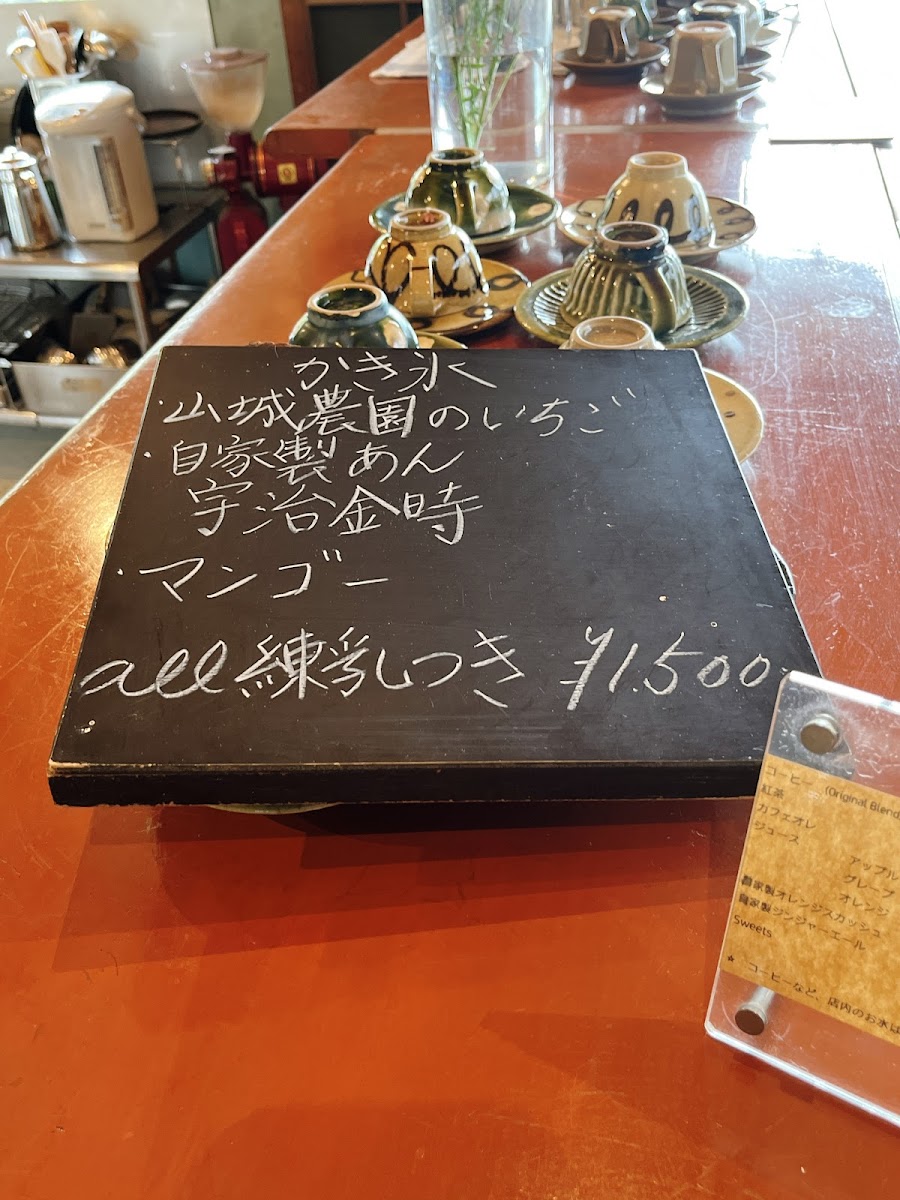 かき氷
・山城農園のいちご
・自家製あん
宇治金時
・マンゴー
all練乳つき ¥1.500
コーヒー (Original Blend
紅茶
カフェオレ
ジュース
アップル
グレープ
オレンジ
自家製オレンジスカッシュ
自家製ジンジャーエール
Sweets
* コーヒーなど、店内のお氷は